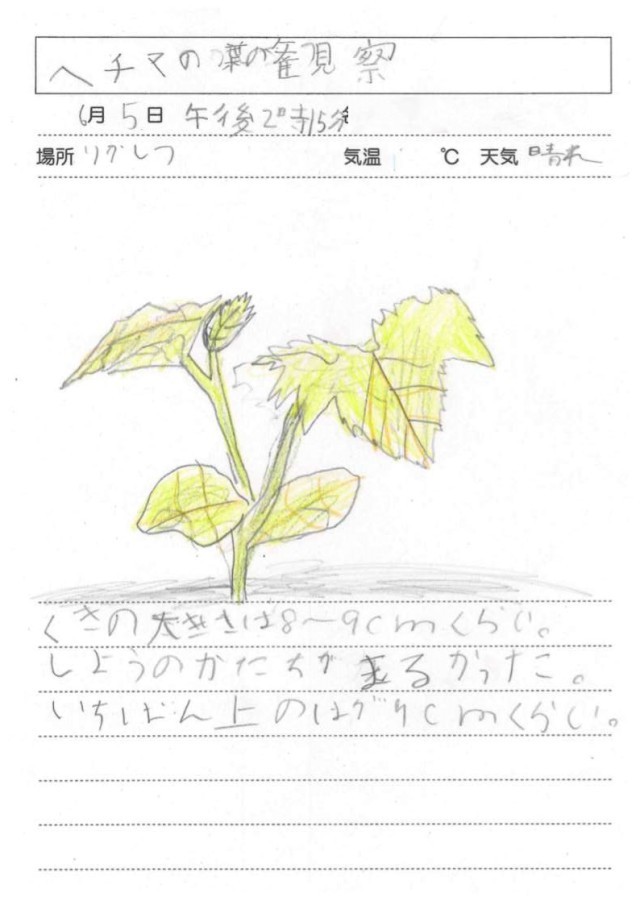 ヘチマの葉の観察
6月5日 午後2時15分
場所 りかしつ 気温 ℃ 天気 晴れ
くきの大きさは8〜9cmくらい。
しようのかたちが まるかった。
いちばん上のはが cmくらい。